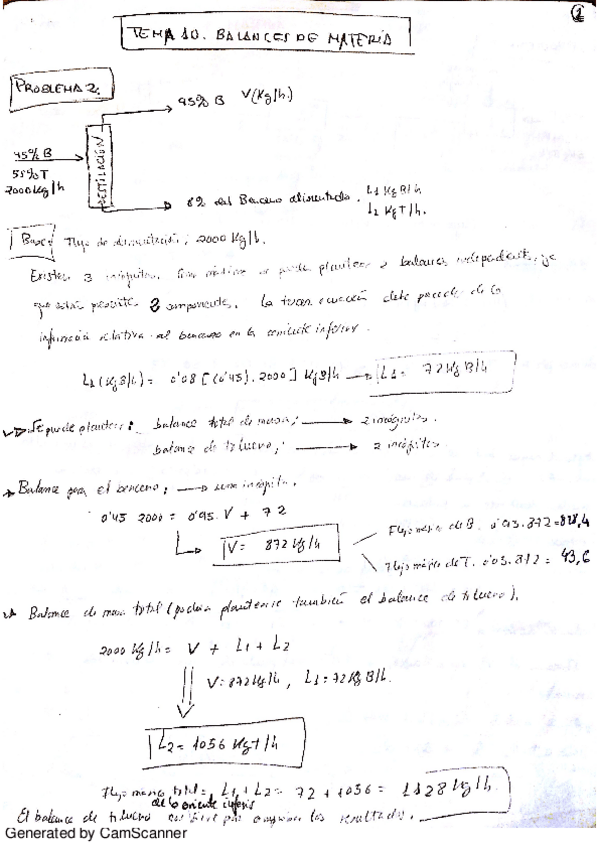 1
TEMA 10. BALANCES DE MATERIA
PROBLEMA 2.
95% B V(Kg/h.)
45% B
55% T
2000 Kg/h
DESTILACIÓN
8% del Benceno alimentado. L1 Kg B/h
L2 Kg T/h.
Base: Flujo de alimentación; 2000 Kg/h.
Existen 3 incógnitas. se puede plantear 2 balances independientes, ya
que están presentes 2 componentes. La tercera ecuación debe proceder de la
información relativa al benceno en la corriente inferior.
L1 (Kg B/h) = 0'08 [(0'45). 2000] Kg B/h → L1 = 72 Kg B/h
Se puede plantear: balance total de masa; → 2 incógnitas.
balance de tolueno; → 2 incógnitas.
Balance para el benceno; → una incógnita.
0'45 2000 = 0'95. V + 72
V = 872 Kg/h
Flujo másico de B. 0'95.872 = 828,4
Flujo másico de T. 0'05.872 = 43,6
Balance de masa total (podría plantearse también el balance de tolueno).
2000 Kg/h = V + L1 + L2
V = 872 Kg/h, L1 = 72 Kg B/h.
L2 = 1056 Kg T/h
Flujo masico total = L1 + L2 = 72 + 1056 = 1128 Kg/h.
de la corriente inferior
El balance de tolueno los resultados.
Generated by CamScanner